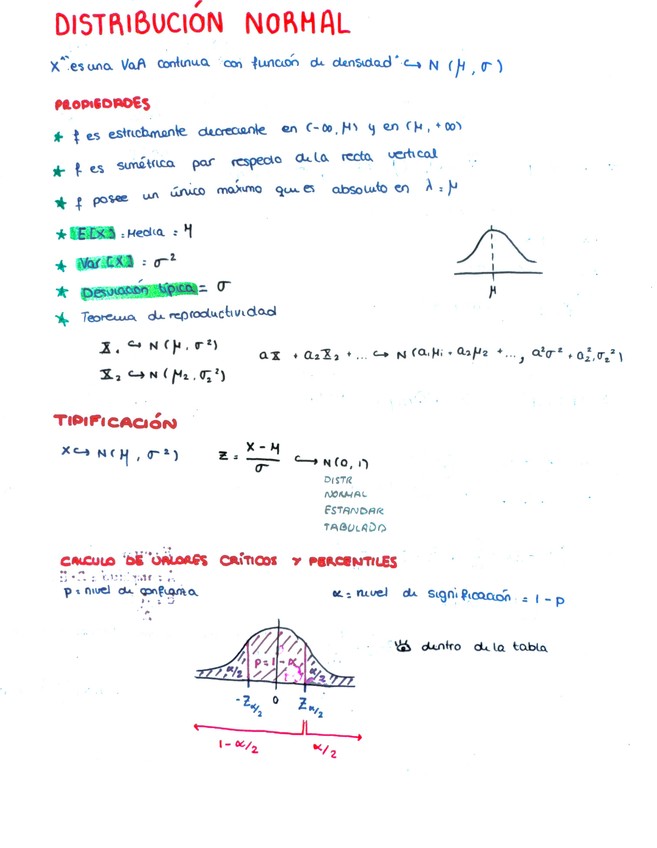 DISTRIBUCIÓN NORMAL
X "es una VaA continua con función de densidad" ↪ N (μ, σ)
PROPIEDADES
★ f es estrictamente decreciente en (-∞, μ) y en (μ, +∞)
★ f es simétrica par respecto de la recta vertical
★ f posee un único máximo que es absoluto en λ = μ
★ E[X] = Media = μ
★ Var [X] = σ²
★ Desviación típica = σ
μ
★ Teorema de reproductividad
X₁ ↪ N(μ, σ²)
X₂ ↪ N(μ₂, σ₂²)
aX + a₂X₂ + ... ↪ N(a₁μ₁ + a₂μ₂ + ..., a²σ² + a₂²,σ₂²)
TIPIFICACIÓN
X ↪ N(μ, σ²) Z = X - μ / σ ↪ N(0, 1)
DISTR
NORMAL
ESTANDAR
TABULADO
CALCULO DE VALORES CRÍTICOS Y PERCENTILES
p = nivel de confianza α = nivel de significación = 1 - p
dentro de la tabla
α/2 P = 1 - α α/2
-Zα/2 0 Zα/2
1 - α/2 α/2